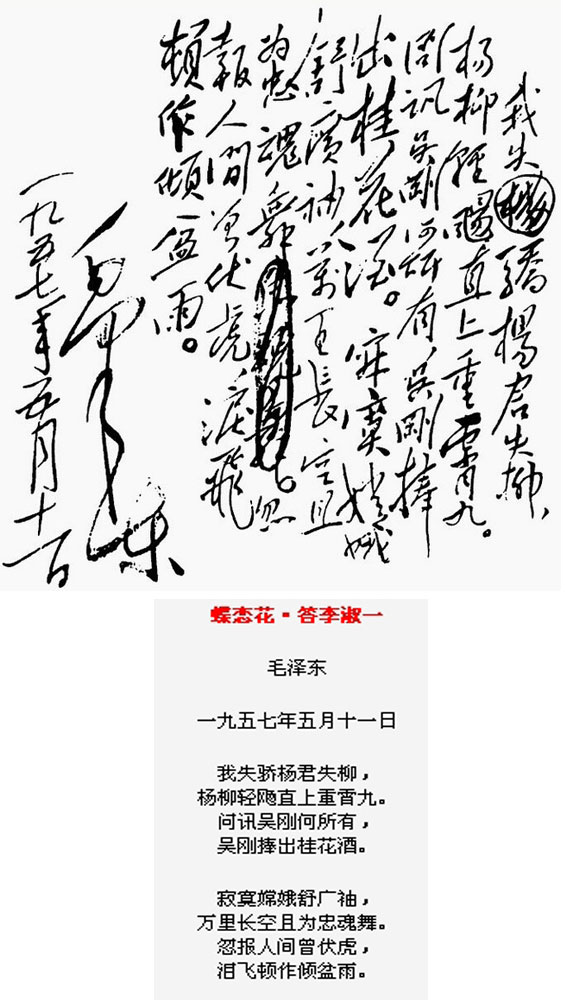 我失驕楊君失柳，
杨柳輕颺直上重霄九。
问訊吳剛何所有，吳剛捧
出桂花酒。寂寞嫦娥
舒廣袖，萬里長空且
為忠魂舞。忽
報人間曾伏虎，淚飛
頓作傾盆雨。
毛泽东
一九五七年五月十一日
蝶恋花·答李淑一
毛泽东
一九五七年五月十一日
我失骄杨君失柳，
杨柳轻飏直上重霄九。
问讯吴刚何所有，
吴刚捧出桂花酒。
寂寞嫦娥舒广袖，
万里长空且为忠魂舞。
忽报人间曾伏虎，
泪飞顿作倾盆雨。